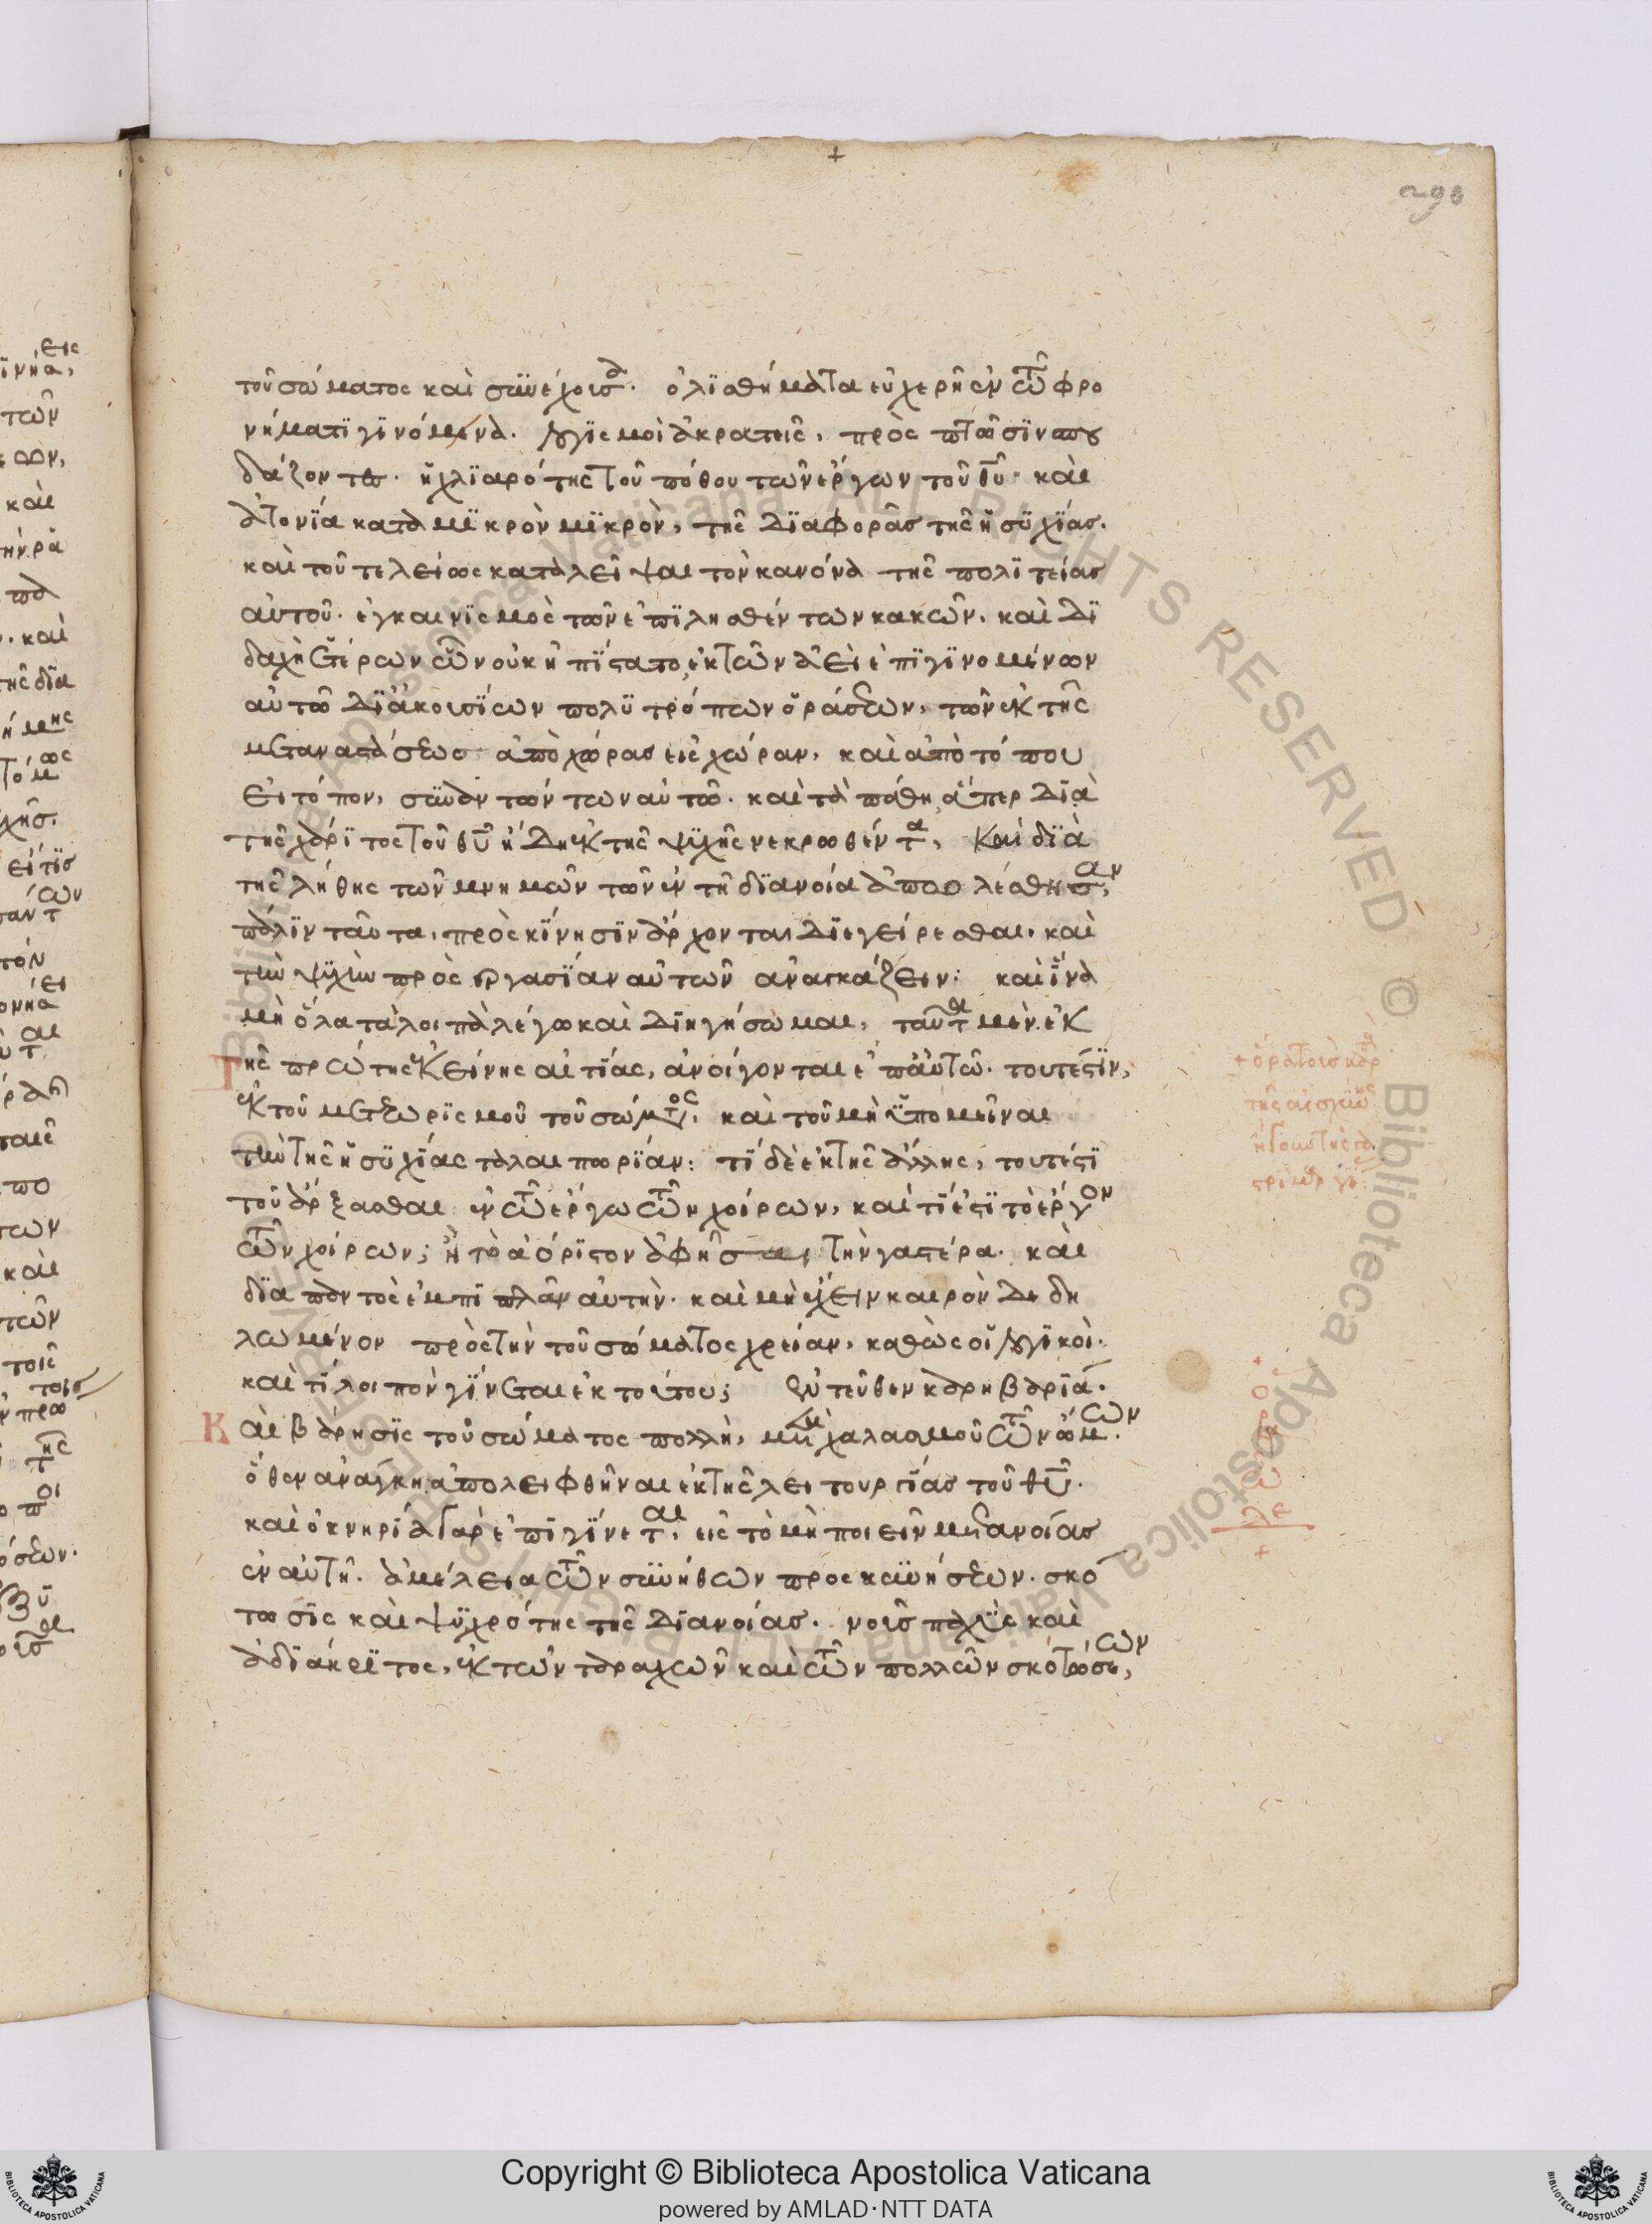 τοῦ σώματος καὶ συνεχούσας. ὀλισθήματα εὐχερῆ ἐν τῷ φρο
νήματι γινόμενα. λογισμοὶ ἀκρατεῖς, πρὸς πτῶσιν σπου
δάζοντες. ἡ χλιαρότης τοῦ πόθου τῶν ἔργων τοῦ θῦ. καὶ
ἀτονία κατὰ μικρὸν μικρὸν, τῆς διαφορᾶς τῆς ἡσυχίας.
καὶ τοῦ τελείως καταλεῖψαι τὸν κανόνα τῆς πολιτείας
αὐτοῦ. ἐγκαινισμὸς τῶν ἐπιλησθέντων κακῶν. καὶ δι
δαχὴ ἑτέρων ὧν οὐκ ἠπίστατο, ἐκ τῶν ἀεὶ ἐπιγινομένων
αὐτῷ διὰ ἀκουσίων πολυτρόπων ὁράσεων, τῶν ἐκ τῆς
μεταναστάσεως ἀπὸ χώρας εἰς χώραν, καὶ ἀπὸ τόπου
εἰς τόπον, συναντώντων αὐτῷ. καὶ τὰ πάθη, ἅπερ διὰ
τῆς χάριτος τοῦ θῦ ἤδη ἐκ τῆς ψυχῆς νεκρωθέντα, καὶ διὰ
τῆς λήθης τῶν μνημῶν τῶν ἐν τῇ διανοία ἀπωλέσθησαν,
πάλιν ταῦτα, πρὸς κίνησιν ἄρχονται διεγείρεσθαι, καὶ
τὴν ψυχὴν πρὸς ἐργασίαν αὐτῶν ἀναγκάζειν: καὶ ἵνα
μὴ ὅλα τὰ λοιπὰ λέγω καὶ διηγήσωμαι, ταῦτα μὲν ἐκ
Τῆς πρώτης ἐκείνης αἰτίας, ἀνοίγονται ἐπ' αὐτῷ. τουτέστιν,
ἐκ τοῦ μετεωρισμοῦ τοῦ σώματος. καὶ τοῦ μὴ ὑπομεῖναι
τὴν τῆς ἡσυχίας ταλαιπωρίαν: τί δὲ ἐκ τῆς ἄλλης, τουτέστι
τοῦ ἄρξασθαι ἐν τῷ ἔργω τῶν χοίρων, καὶ τί ἐστι τὸ ἔργον
τῶν χοίρων; ἢ τὸ ἀόριστον ἀφῆσαι, τὴν γαστέρα. καὶ
διὰ παντὸς ἐμπιπλᾶν αὐτὴν. καὶ μὴ ἔχειν καιρὸν δεδη
λωμένον πρὸς τὴν τοῦ σώματος χρείαν, καθὼς οἱ λογικοὶ.
καὶ τί λοιπὸν γίνεται ἐκ τούτου; ἐντεῦθεν καρηβαρία.
Καὶ βάρησις τοῦ σώματος πολλὴ, μετὰ χαλασμοῦ τῶν ὤμων.
ὅθεν ἀνάγκη ἀπολειφθῆναι ἐκ τῆς λειτουργίας τοῦ θῦ.
καὶ ὀκνηρία γὰρ ἐπιγίνεται, εἰς τὸ μὴ ποιεῖν μετανοίας
ἐν αὐτῆ. ἀμέλεια τῶν συνήθων προσκυνήσεων. σκό
τωσις καὶ ψυχρότης τῆς διανοίας. νοῦς παχὺς καὶ
ἀδιάκριτος, ἐκ τῶν ταραχῶν καὶ τῶν πολλῶν σκοτώσεων,
Copyright © Biblioteca Apostolica Vaticana
powered by AMLAD·NTT DATA